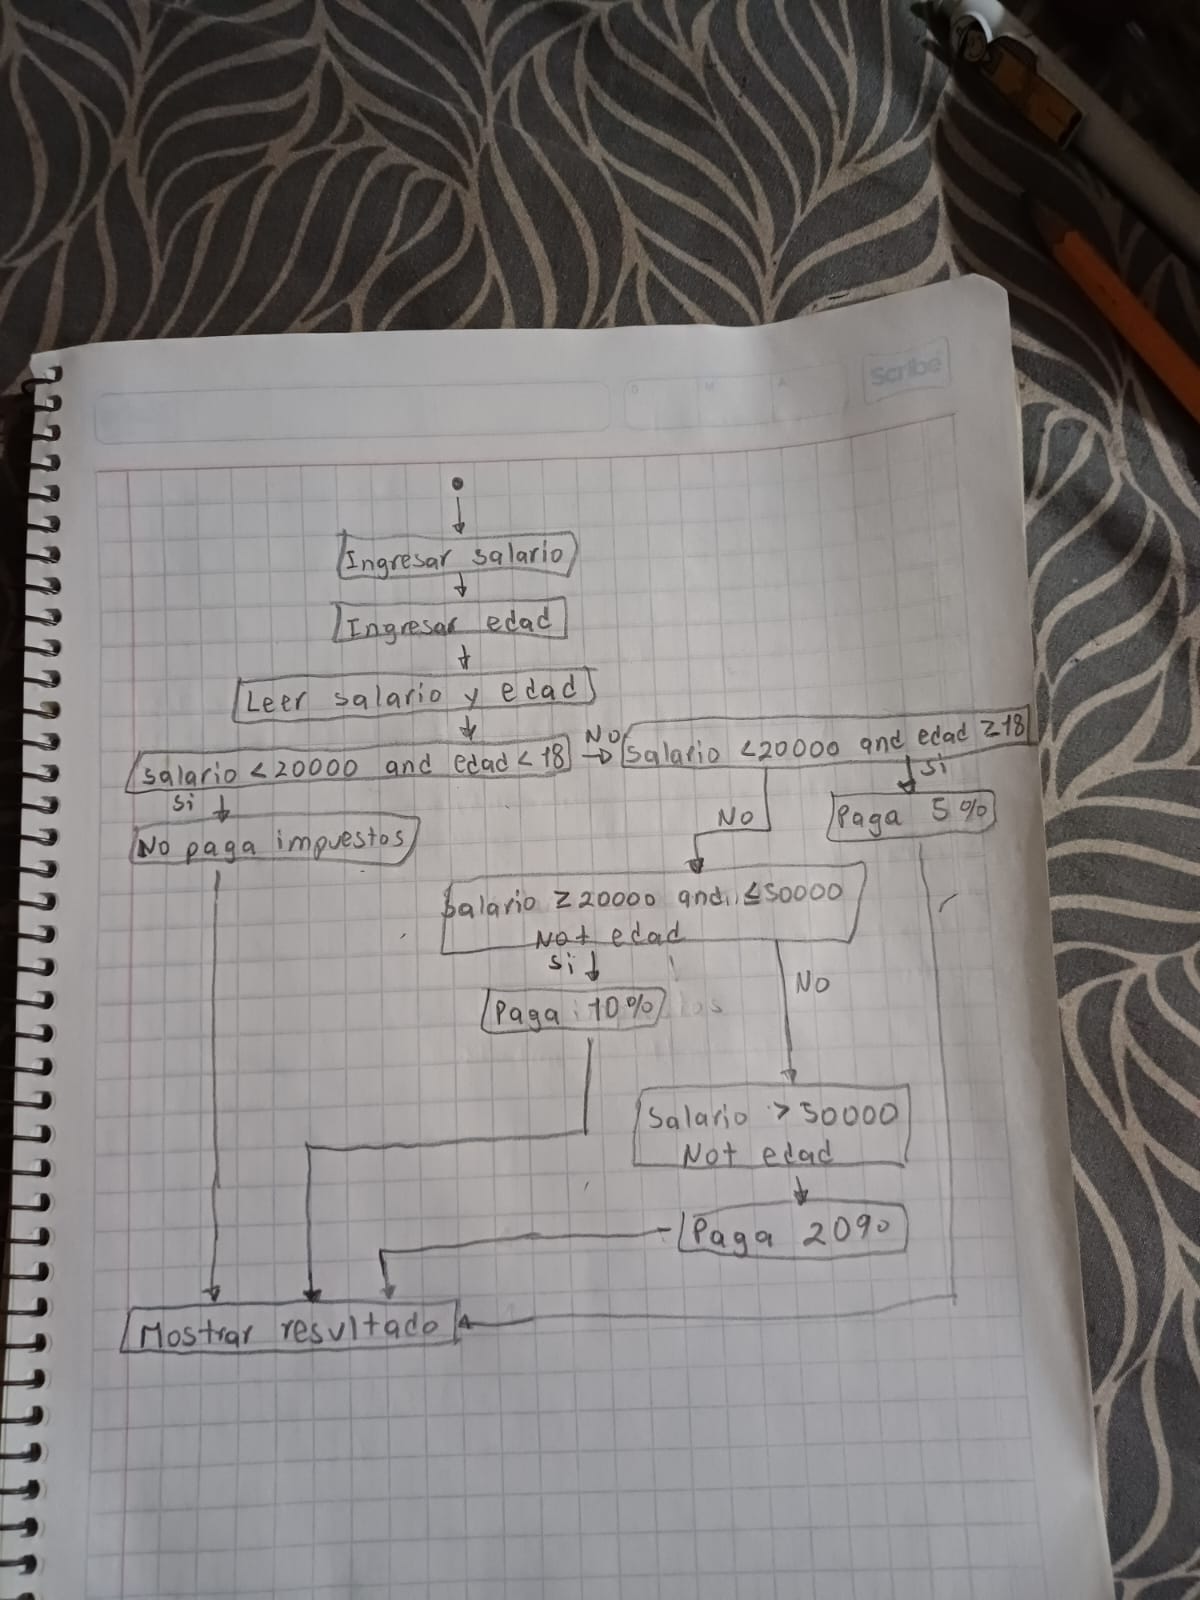 Scribe
Ingresar salario
Ingresar edad
Leer salario y edad
salario < 20000 and edad < 18
No
Salario < 20000 and edad ≥ 18
Si
No paga impuestos
Si
Paga 5%
No
Salario ≥ 20000 and ≤ 50000
Not edad
Si
Paga 10%
No
Salario > 50000
Not edad
Paga 20%
Mostrar resultado